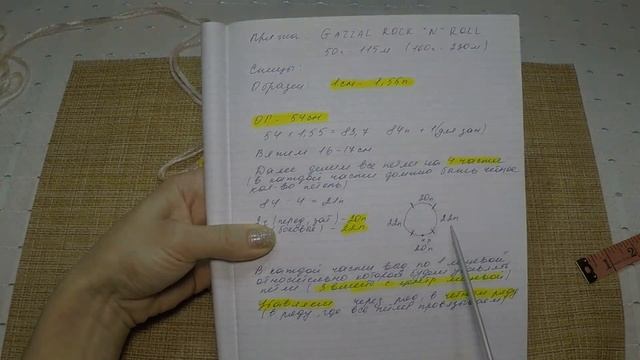 Пряжа GAZZAL ROCK "N" ROLL
50г - 115м (100г - 230м)
Спицы:
Образец 1см - 1,55п
ОГ - 54см
54 × 1,55 = 83,7 84п + 1 (для зам)
Вяжем 16-17см
Далее делим все петли на 4 части
(в каждой части должно быть четное
кол-во петель)
84 : 4 = 21п
(перед, зат) - 20п
(боковые) - 22п
20п
22п
22п
20п
В каждой части ввяз по 1 лицевой
относительно которой будем убавлять
петли (3 вместе с центр. лицевой)
Убавляем через ряд, в четном ряду
(в ряду, где все петли провязываем)